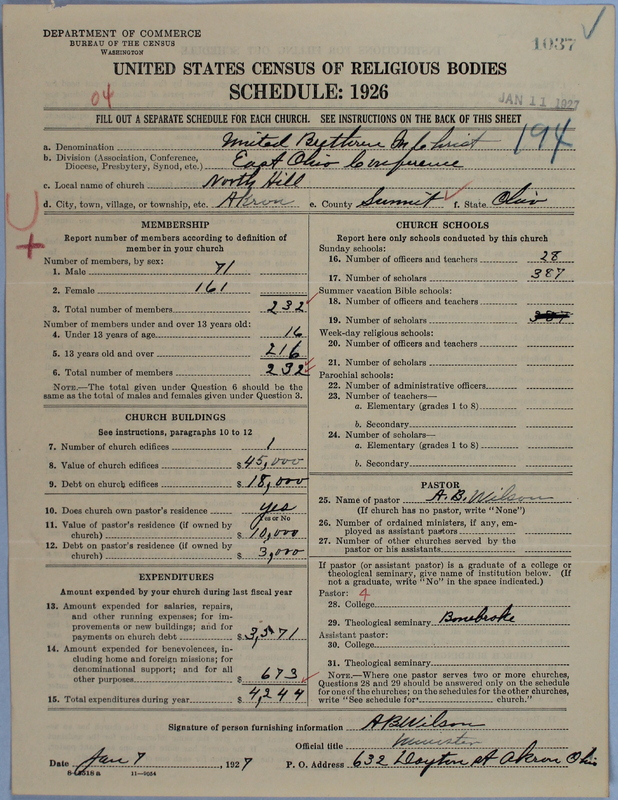 DEPARTMENT OF COMMERCE
BUREAU OF THE CENSUS
WASHINGTON
1037
UNITED STATES CENSUS OF RELIGIOUS BODIES
04
SCHEDULE: 1926
JAN 11 1927
FILL OUT A SEPARATE SCHEDULE FOR EACH CHURCH. SEE INSTRUCTIONS ON THE BACK OF THIS SHEET
194
a. Denomination United Brethren In Christ
b. Division (Association, Conference, Diocese, Presbytery, Synod, etc.) East Ohio Conference
c. Local name of church North Hill
d. City, town, village, or township, etc. Akron e. County Summit f. State Ohio
MEMBERSHIP
Report number of members according to definition of
member in your church
Number of members, by sex:
1. Male 71
2. Female 161
3. Total number of members 232
Number of members under and over 13 years old:
4. Under 13 years of age 16
5. 13 years old and over 216
6. Total number of members 232
NOTE.—The total given under Question 6 should be the
same as the total of males and females given under Question 3.
CHURCH BUILDINGS
See instructions, paragraphs 10 to 12
7. Number of church edifices 1
8. Value of church edifices $45,000
9. Debt on church edifices $18,000
10. Does church own pastor's residence yes
Yes or No
11. Value of pastor's residence (if owned by
church) $10,000
12. Debt on pastor's residence (if owned by
church) $3,000
EXPENDITURES
Amount expended by your church during last fiscal year
13. Amount expended for salaries, repairs,
and other running expenses; for im-
provements or new buildings; and for
payments on church debt $3,571
14. Amount expended for benevolences, in-
cluding home and foreign missions; for
denominational support; and for all
other purposes $673
15. Total expenditures during year $4,244
CHURCH SCHOOLS
Report here only schools conducted by this church
Sunday schools:
16. Number of officers and teachers 28
17. Number of scholars 387
Summer vacation Bible schools:
18. Number of officers and teachers
19. Number of scholars
Week-day religious schools:
20. Number of officers and teachers
21. Number of scholars
Parochial schools:
22. Number of administrative officers
23. Number of teachers—
a. Elementary (grades 1 to 8)
b. Secondary
24. Number of scholars—
a. Elementary (grades 1 to 8)
b. Secondary
PASTOR
25. Name of pastor A. B. Wilson
(If church has no pastor, write "None")
26. Number of ordained ministers, if any, em-
ployed as assistant pastors
27. Number of other churches served by the
pastor or his assistants
If pastor (or assistant pastor) is a graduate of a college or
theological seminary, give name of institution below. (If
not a graduate, write "No" in the space indicated.)
Pastor: 4
28. College
29. Theological seminary Bonebrake
Assistant pastor:
30. College
31. Theological seminary
NOTE.—Where one pastor serves two or more churches,
Questions 28 and 29 should be answered only on the schedule
for one of the churches; on the schedules for the other churches,
write "See schedule for church."
Signature of person furnishing information A B Wilson
Official title Minister
Date Jan 7, 1927 P. O. Address 632 Dayton St Akron Ohio
11—9034